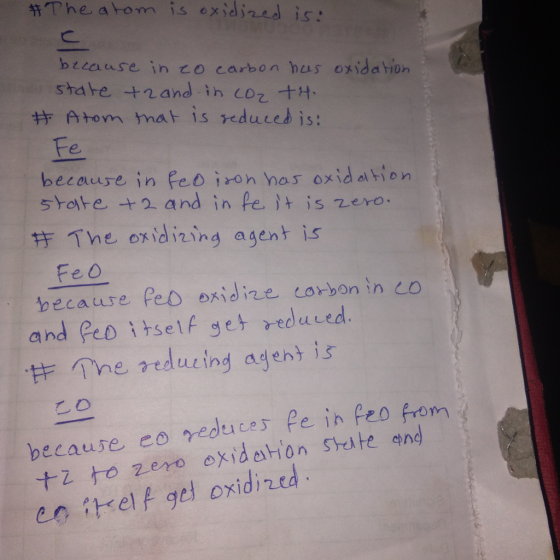 # The atom is oxidized is:
C
because in co carbon has oxidation
state +2 and in CO2 +4.
# Atom that is reduced is:
Fe
because in feO iron has oxidation
state +2 and in fe it is zero.
# The oxidizing agent is
FeO
because feO oxidize carbon in CO
and feO itself get reduced.
# The reducing agent is
CO
because co reduces fe in feo from
+2 to zero oxidation state and
co itself get oxidized.